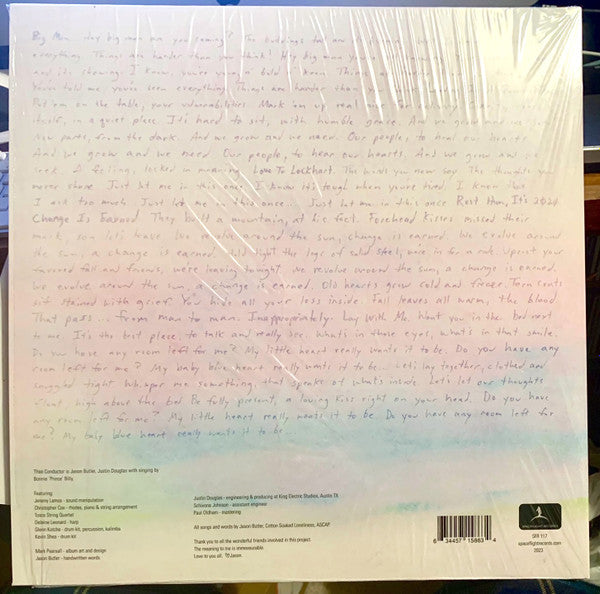 Big Man Hey big man are you coming? The buildings tall are
everything. Things are harder than you think! Hey big man you're
and it's showing. I know, you're young & bold. I know. Things are
You've told me you've seen everything. Things are harder than you
Put 'em on the table, your vulnerabilities. Mark 'em up real nice for
itself, in a quiet place. It's hard to sit, with humble grace. And we grow and we
New parts, from the dark. And we grow and we need. Our people, to heal our hearts.
And we grow and we need Our people, to hear our hearts. And we grow and we
seek A feeling, locked in meaning. Love To Lockhart. The words you never say. The thoughts you
never share. Just let me in this once. I know it's tough when you're tired. I know that
I ask too much. Just let me in this once... Just let me in this once Rest Hon, It's 2024
Change Is Earned They built a mountain, at his feet. Forehead Kisses missed their
mark, son let's leave. We revolve around the sun, change is earned. We evolve around
the sun, a change is earned. Hold tight the legs of solid steel, we're in for a ride. Uproot your
favored fall and friends, we're leaving tonight. We revolve around the sun, a change is earned.
We evolve around the sun, a change is earned. Old hearts grow cold and freeze. Torn coats
sit stained with grief. You hide all your loss inside. Fall leaves all warm, the blood
That pass... from man to man. Inappropriately. Lay With Me. Want you in the bed next
to me. It's the best place, to talk and really see. What's in those eyes, what's in that smile.
Do you have any room left for me? My little heart really wants it to be. Do you have any
room left for me? My baby blue heart really wants it to be... Let's lay together, clothed and
snuggled tight Whisper me something, that speaks of what's inside. Let's let our thoughts
float high above the bed Be fully present, a loving kiss right on your head. Do you have
any room left for me? My little heart really wants it to be. Do you have any room left for
me? My baby blue heart really wants it to be...
Thee Conductor is Jason Butler, Justin Douglas with singing by
Bonnie 'Prince' Billy
Featuring:
Jeremy Lemos - sound manipulation
Christopher Cox - rhodes, piano & string arrangement
Tosca String Quartet
Delaine Leonard - harp
Glenn Kotche - drum kit, percussion, kalimba
Kevin Shea - drum kit
Mark Pearsall - album art and design
Jason Butler - handwritten words
Justin Douglas - engineering & producing at King Electric Studios, Austin TX
Schivonne Johnson - assistant engineer
Paul Oldham - mastering
All songs and words by Jason Butler, Cotton Soaked Loneliness, ASCAP
Thank you to all the wonderful friends involved in this project.
The meaning to me is immeasurable.
Love to you all. ♡Jason.
6 34457 15863 4
SFR 117
spaceflightrecords.com
2023